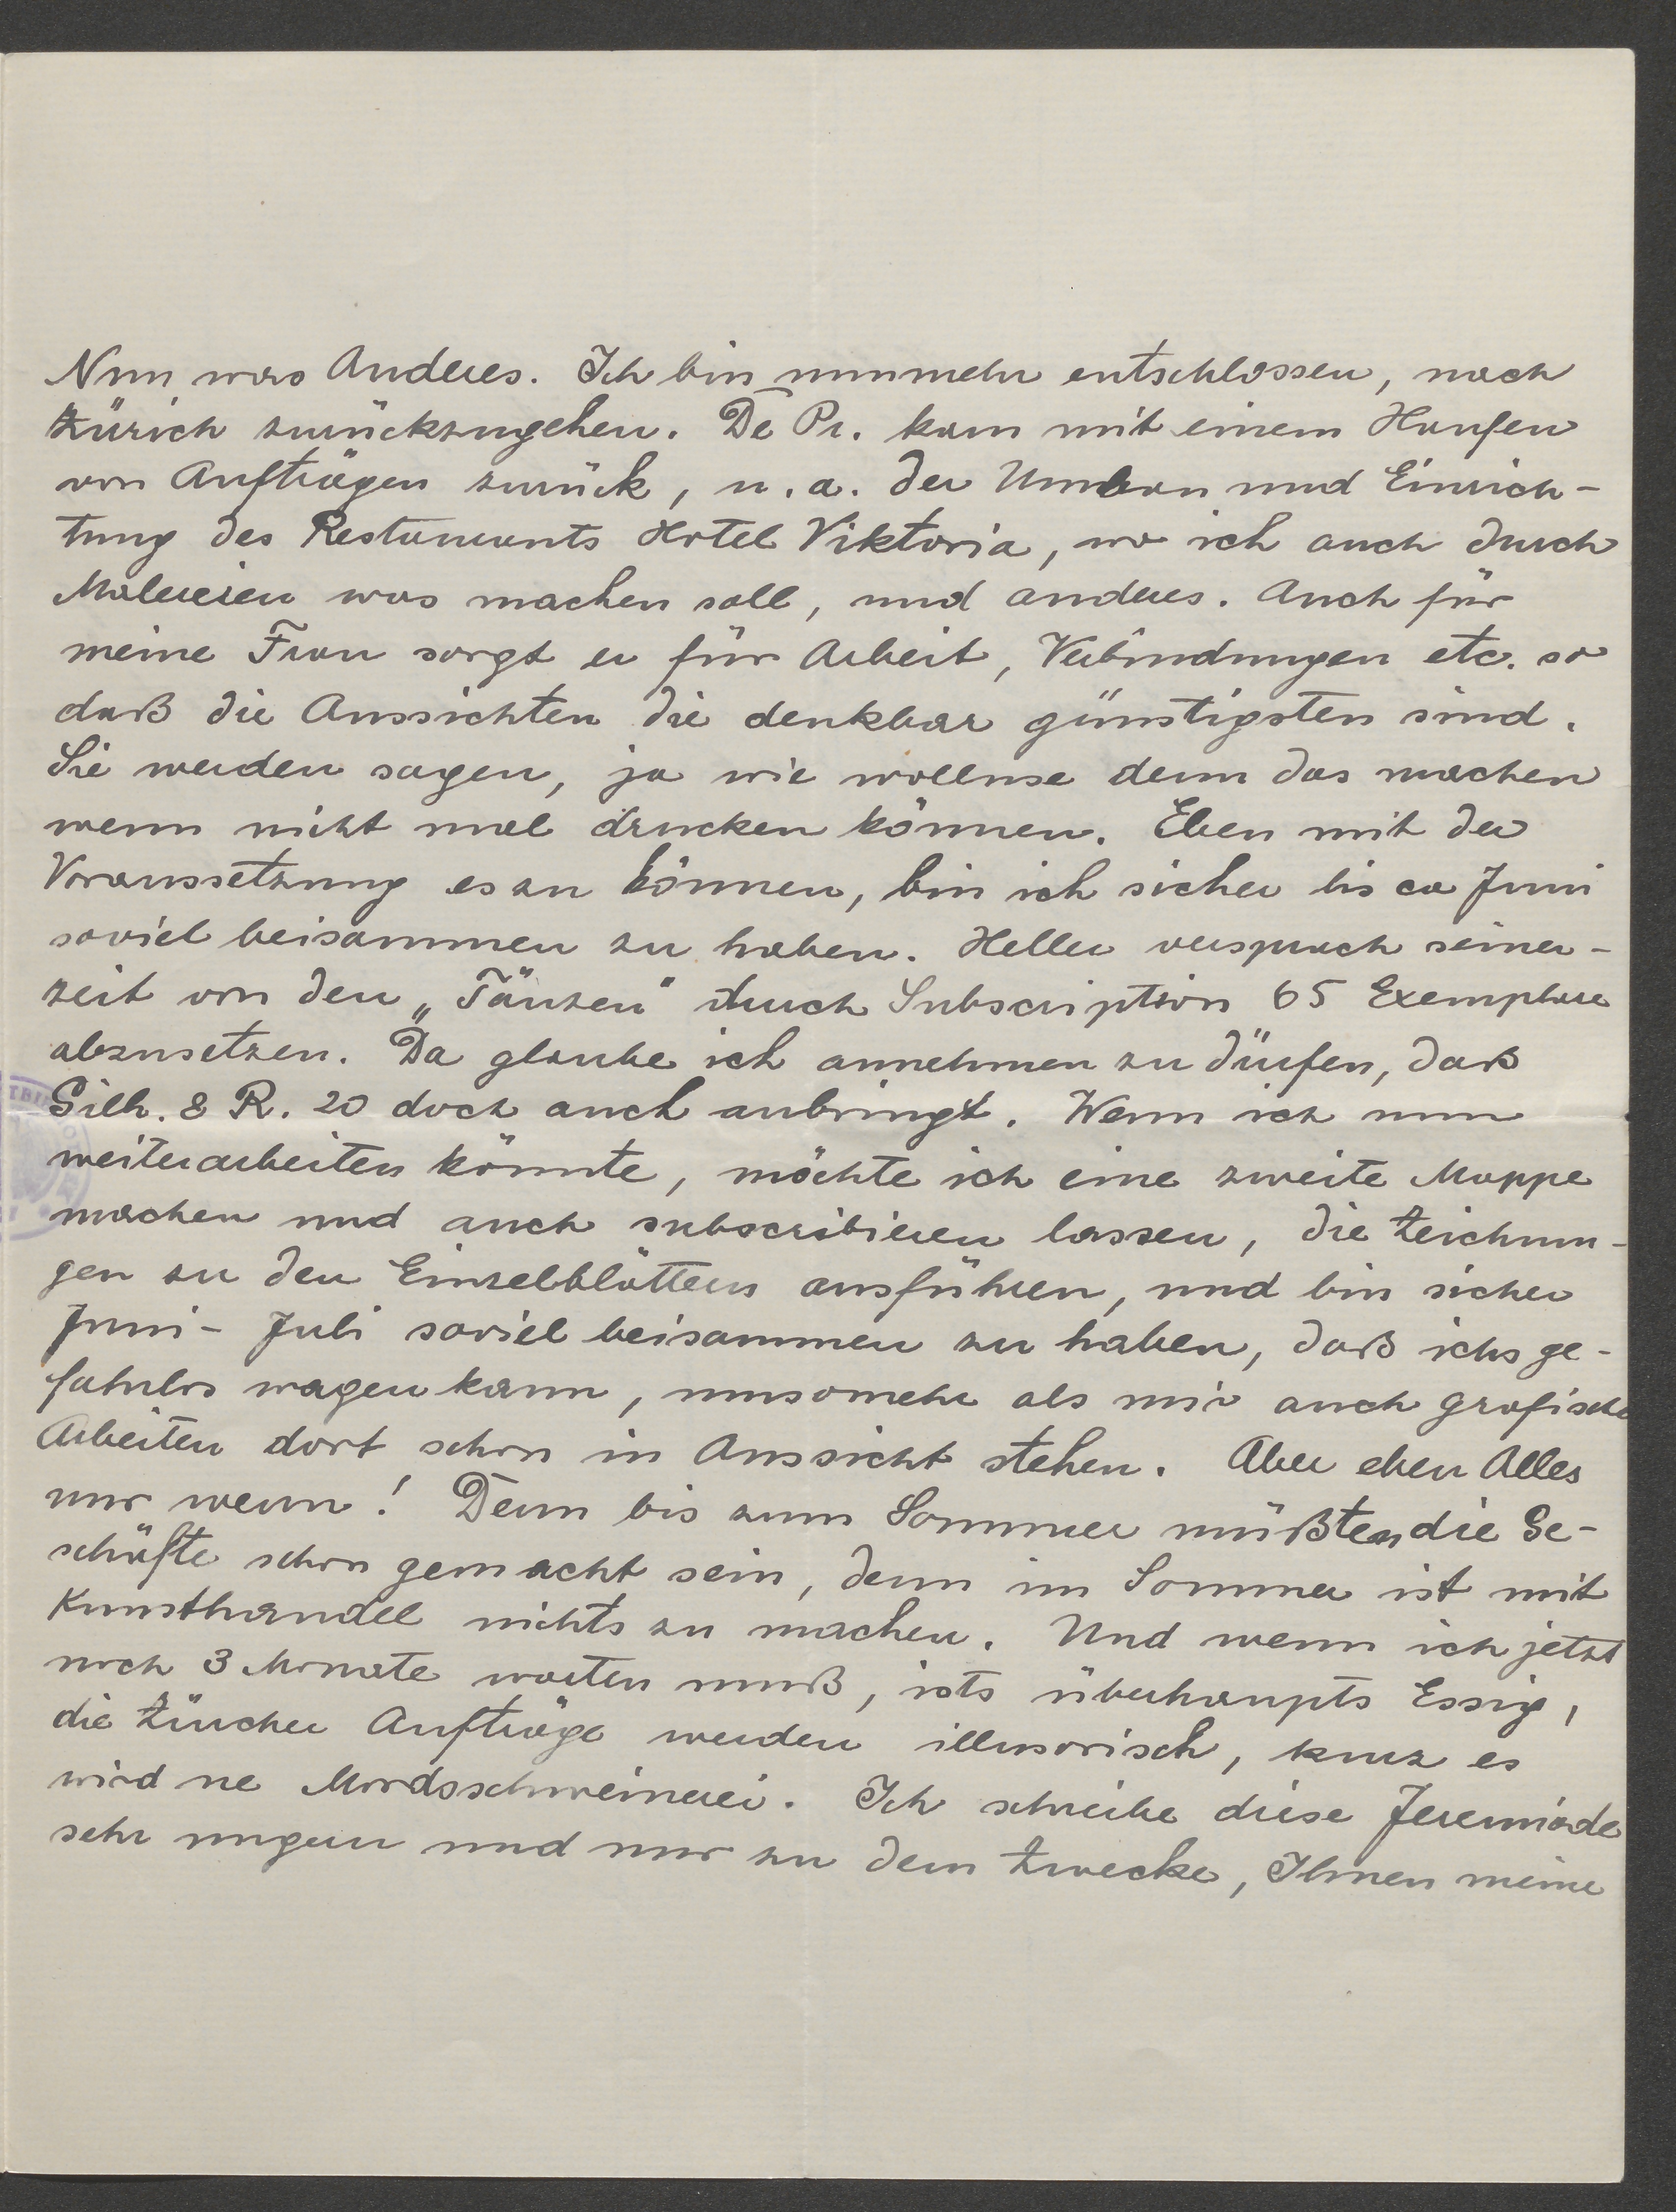 Nun was Anderes. Ich bin nunmehr entschlossen, nach
Zürich zurückzugehen. De Pr. kam mit einem Haufen
von Aufträgen zurück, u. a. der Umbau und Einrich-
tung des Restaurants Hotel Viktoria, wo ich auch durch
Malereien was machen soll, und anderes. Auch für
meine Frau sorgt er für Arbeit, Verbindungen etc. so
daß die Aussichten die denkbar günstigsten sind.
Sie werden sagen, ja wie wollnse denn das machen
wenn nicht mal drucken können. Eben mit der
Voraussetzung es zu können, bin ich sicher bis ca Juni
soviel beisammen zu haben. Heller versprach seiner-
zeit von den „Tänzen" durch Subscription 65 Exemplare
abzusetzen. Da glaube ich annehmen zu dürfen, daß
Gilh. & R. 20 doch auch anbringt. Wenn ich nun
weiterarbeiten könnte, möchte ich eine zweite Mappe
machen und auch subscribieren lassen, die Zeichnun-
gen zu den Einzelblättern ausführen, und bin sicher
Juni - Juli soviel beisammen zu haben, daß ichs ge-
fahrlos wagen kann, umsomehr als mir auch grafische
Arbeiten dort schon in Aussicht stehen. Aber eben Alles
nur wenn! Denn bis zum Sommer müßten die Ge-
schäfte schon gemacht sein, denn im Sommer ist mit
Kunsthandel nichts zu machen. Und wenn ich jetzt
noch 3 Monate warten muß, ists überhaupts Essig,
die Zürcher Aufträge werden illusorisch, kurz es
wird ne Mordsschweinerei. Ich schreibe diese Jeremiade
sehr ungern und nur zu dem Zwecke, Ihnen meine